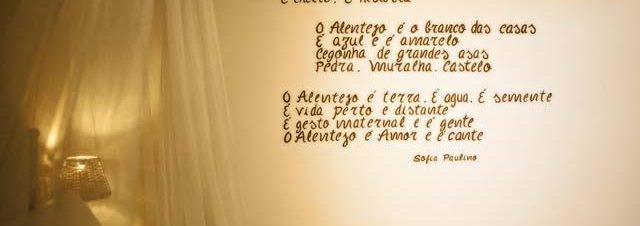 O Alentejo é o branco das casas
É azul e é amarelo
Cegonha de grandes asas
Pedra. Muralha. Castelo
O Alentejo é terra. É agua. É semente
É vida perto e distante
É gesto maternal e é gente
O Alentejo é Amor e é cante
Sofia Paulino